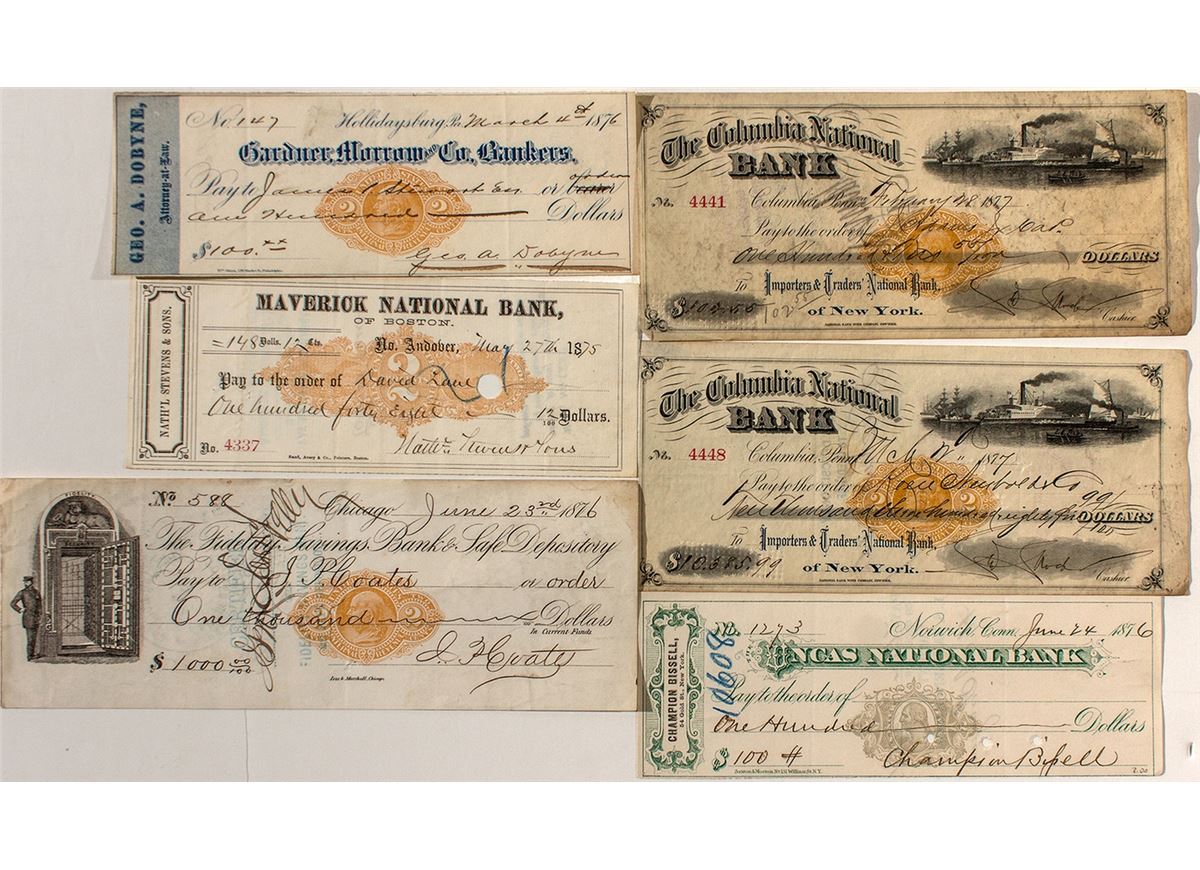 GEO. A. DOBYNE,
Attorney-at-Law.
No. 147 Hollidaysburg, Pa. March 4th 1876
Gardner, Morrow and Co. Bankers,
Pay to James Stewart Esq or order
One Hundred Dollars
$100.xx Geo. A. Dobyne
NATH'L STEVENS & SONS.
MAVERICK NATIONAL BANK,
OF BOSTON.
=148 Dolls. 12 Cts. No. Andover, May 27th 1875
Pay to the order of David Lane
One hundred forty Eight 12/100 Dollars.
No. 4337 Stevens & Sons
Rand, Avery & Co., Printers, Boston.
FIDELITY
No 588 Chicago June 23rd 1876
The Fidelity Savings Bank & Safe Depository
Pay to J. F. Coates or order
One thousand or Dollars
In Current Funds
$1000 00/100 J. F. Coates
The Columbia National
BANK
No. 4441 Columbia, Penna. February 28 1877
Pay to the order of
One Hundred & Dollars
To Importers & Traders' National Bank,
$ 105.55 of New York. Cashier
The Columbia National
BANK
No. 4448 Columbia, Penna. 1877
Pay to the order of
Ten thousand three hundred eighty five 99/100 DOLLARS
To Importers & Traders' National Bank,
$10.385.99 of New York. Cashier
CHAMPION BISSELL,
54 Gold St., New York.
10608
No. 1273 Norwich, Conn. June 24 1876
UNCAS NATIONAL BANK
Pay to the order of
One Hundred Dollars
$ 100 # Champion Bissell
2.00